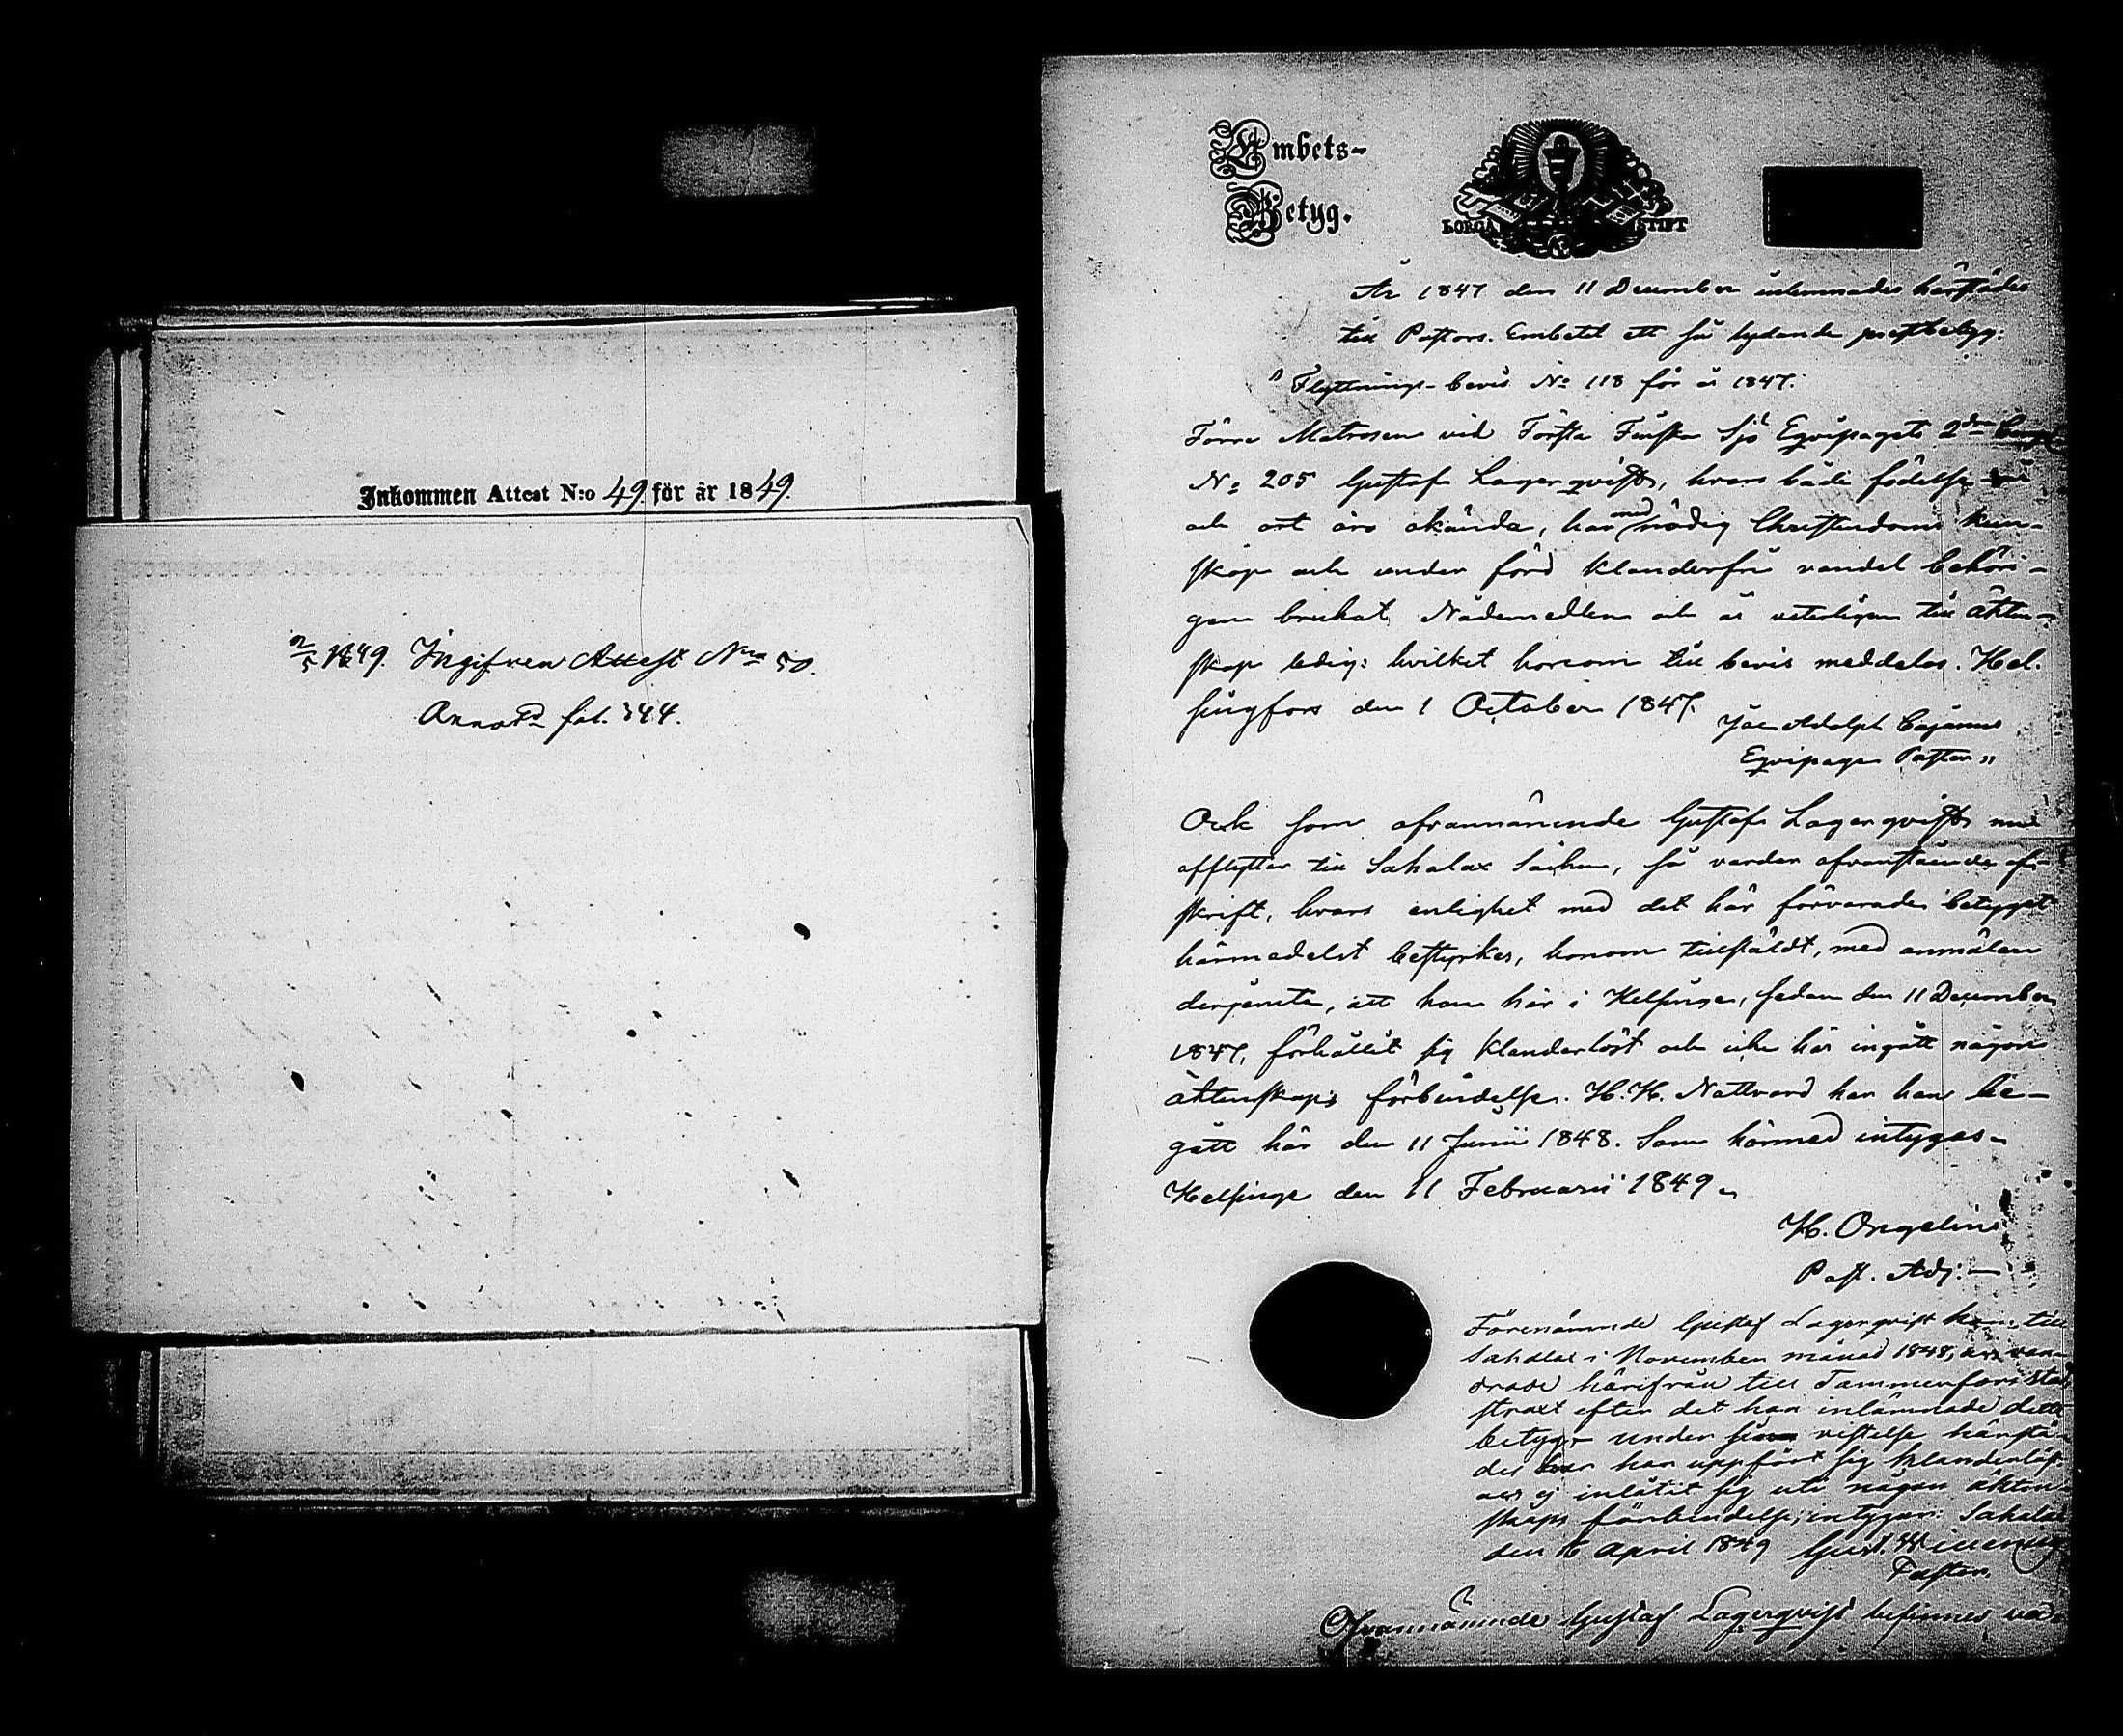 Inkommen Attest N:o 49 för år 1849.
2/5 1849. Ingifven Attest Nro 50.
Annot. fol. 344.
Embets-
Betyg.
BORGÅ STIFT
År 1847 den 11 December inlemnades härstädes
till Pastors Embetet ett så lydande prestbetyg:
"Flyttnings-bevis No 118 för år 1847.
Förre Matrosen vid Första Finska Sjö Eqvipagets 2dra
No 205 Gustaf Lagerqvist, hvars både födelse
och ort äro okända, har med nödig Christendoms kun-
skap och under förd klanderfri vandel behöri-
gen brukat Nådemedlen och är veterligen till äkten-
skap ledig: hvilket honom till bevis meddelas. Hel-
singfors den 1 October 1847.
Jac Adolph Cajanus
Eqvipage Pastor"
Och som ofvannämnde Gustaf Lagerqvist nu
afflyttar till Sahalax Socken, så varder ofvanstående af-
skrift, hvars enlighet med det här förvarade betyget
härmedelst bestyrkes, honom tillstäldt, med anmälan
derjemte, att han här i Helsinge, sedan den 11 December
1847, förhållit sig klanderlöst och icke här ingått någon
äktenskaps förbindelse. H. H. Nattvard har han be-
gått här den 11 Junii 1848. Som härmed intygas.
Helsinge den 11 Februarii 1849.
H. Ongelin
Past. Adj.
Förenämnde Gustaf Lagerqvist kom till
Sahalax i November månad 1848, van-
drade härifrån till Tammerfors stad
straxt efter det han inlämnade detta
betyg, under vistelse härstä-
des har han uppfört sig klanderlöst
och ej inlåtit sig uti någon äkten-
skaps förbindelse; intygar: Sahalax
den 16 April 1849 Gust.
Pastor.
Ofvannämnde Gustaf Lagerqvist befinnes va-